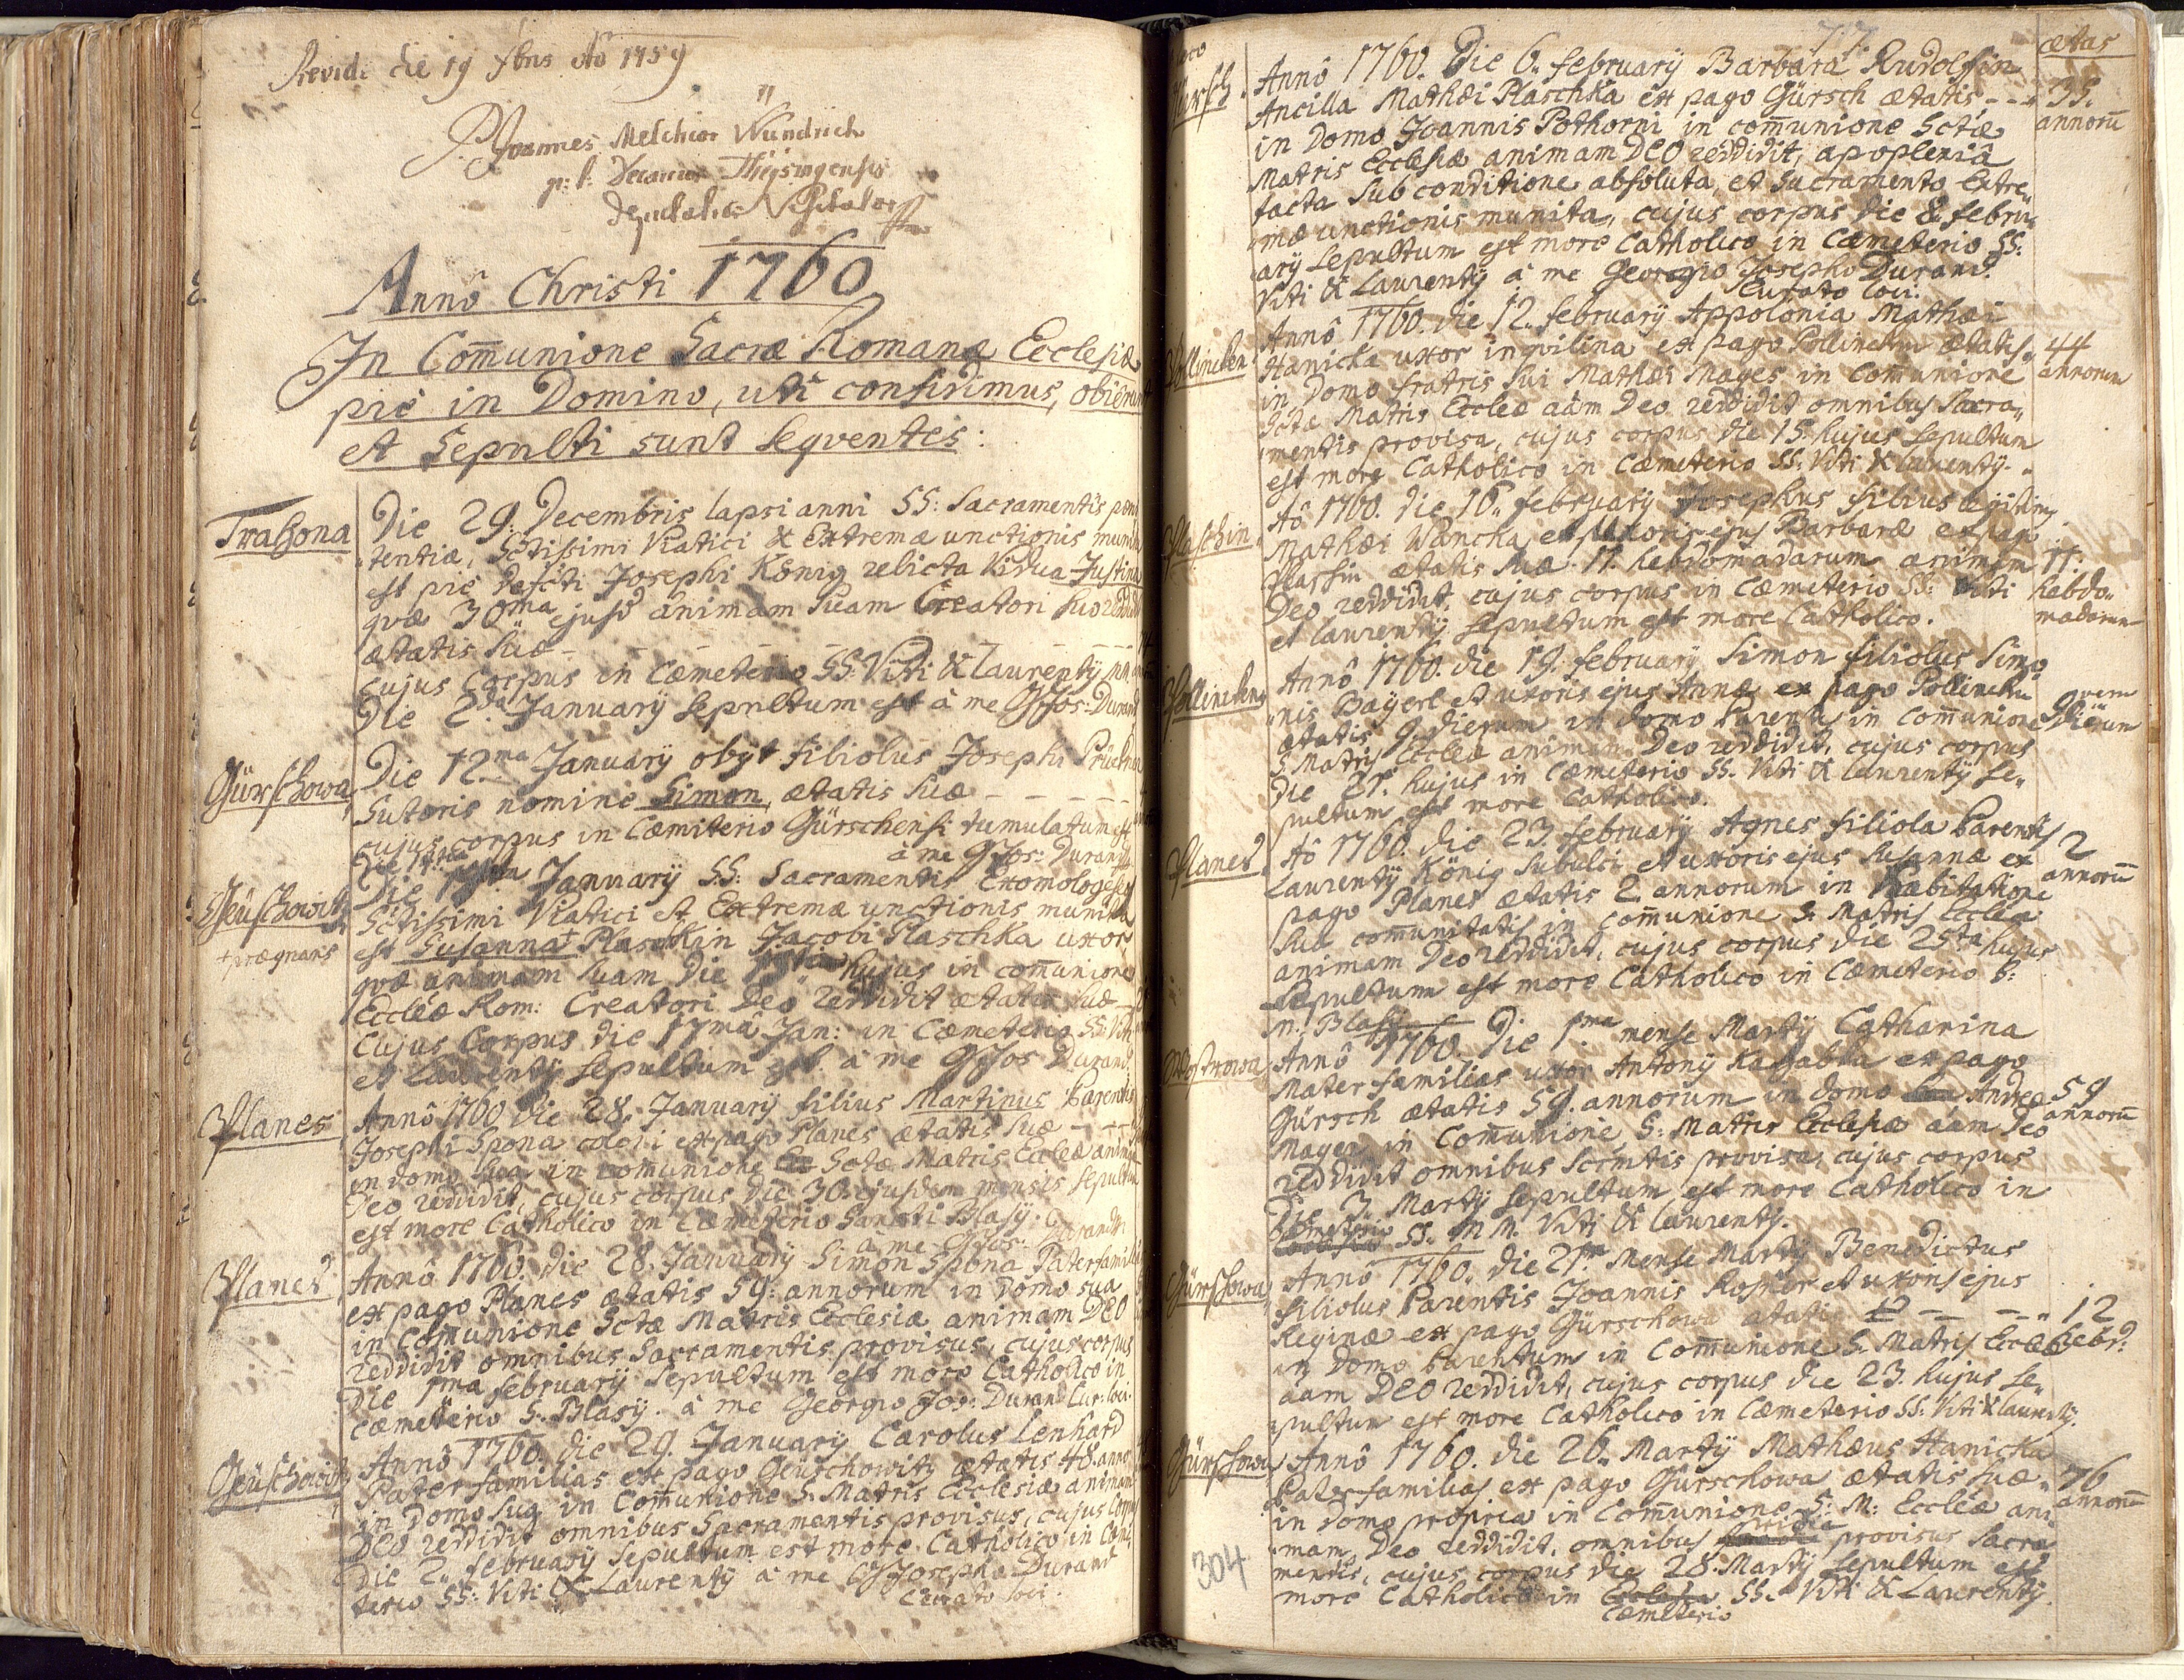 Revidi die 19 Xbris aõ 1759
Joannes Melchior Wundrich
p: t: Decanus Theisingensis
deputatus Visitator
Annô Christi 1760
In Com̄unione Sacræ Romanæ Ecclesiæ
piè in Domino, uti confidimus, obierunt
et Sepulti sunt seqventes:
Trahona
Die 29. Decembris lapsi anni SS: Sacramentis pœni
tentiæ, Sctissimi Viatici & Extremæ unctionis munita
est piè defcti Josephi König relicta Vidua Justina
qvæ 30ma ejusd animam suam Creatori suo reddidit
ætatis suæ - - - - - -
cujus Corpus in Cæmeterio SS: Viti & Laurentÿ MM.
Die 2da Januarÿ sepultum est à me GJos: Durand
Gürschowa
Die 12ma Januarÿ obÿt filiolus Josephi
Sutoris nomine Simon, ætatis suæ - - - -
cujus corpus in Cæmiterio Gürschensi tumulatum est
à me GJos: Durand
Geuschowitz
Januarÿ SS: Sacramentis Exomologeseos
Sctissimi Viatici et Extremæ unctionis munita
est Susanna+ Plaschkin Jacobi Plaschka uxor
+ prægnans
qvæ animam suam die hujus in com̄unione
Eccleæ Rom: Creatori Deo reddidit ætatis suæ
Cujus Corpus die 17mâ Jan: in Cæmeterio SS: Viti
et Laurentÿ sepultum est à me GJos Durand.
Planes
Annô 1760 die 28. Januarÿ filius Martinus Parentis
Josephi Spona coloni ex pago Planes ætatis suæ - -
in domo sua in com̄unione Sctæ Matris Eccleæ animam
Deo reddidit, cujus corpus die 30. ejusdem mensis sepultum
est more Catholico in Cæmeterio Sancti Blasÿ.
à me GJos: Durand
Planes
Annô 1760. die 28. Januarÿ Simon Spona Paterfamilias
ex pago Planes ætatis 59. annorum in domo sua
in Com̄unione Sctæ Matris Ecclesiæ animam DEO
reddidit omnibus Sacramentis provisus, cujus corpus
die 1ma februarÿ sepultum est more Catholico in
cæmeterio S. Blasÿ. à me Georgio Jos: Durand Cur: loci.
Geuschowitz
Annô 1760. die 29. Januarÿ Carolus Lenhard
Pater familias ex pago Geuschowitz ætatis 48. anno
in domo sua in Com̄unione S. Matris Ecclesiæ animam
DEO reddidit omnibus Sacramentis provisus, cujus Corpus
die 2. februarÿ sepultum est more Catholico in Cæme
terio SS: Viti & Laurentÿ à me GJosepho Durand
Curato loci.
77.
ætas
Annô 1760. Die 6. februarÿ Barbara Rudolfin
Ancilla Mathæi Plaschka ex pago Gürsch ætatis - - 35.
annorū
in Domo Joannis Pothorni in com̄unione Sctæ
Matris Ecclesiæ animam DEO reddidit, apoplexiâ
tacta sub conditione absoluta, et Sacramento Extre
mæ unctionis munita, cujus corpus die 8. febru
arÿ sepultum est more Catholico in Cæmeterio SS:
Viti & Laurentÿ à me Georgio Josepho Durand
Curato loci.
Pollincken
Annô 1760. die 12. februarÿ Appolonia Mathæi
Hanicka uxor inqvilina ex pago Pollincken ætatis 44
annorum
in Domo fratris sui Mathæi Mayes in Com̄unione
Sctæ Matris Eccleæ aām Deo reddidit omnibus Sacra
mentis provisa, cujus corpus die 15. hujus sepultum
est more Catholico in Cæmeterio SS: Viti & Laurentÿ.
Plaschin
Aõ 1760. die 16. februarÿ Josephus filius legitimg
Mathæi Wancka, et Uxoris ejus Barbaræ ex pago
Plassin ætatis suæ 11. hebdomadarum animam 11.
hebdo
madarum
Deo reddidit, cujus corpus in Cæmeterio SS: Viti
et laurentÿ sepultum est more Catholico.
Pollincken
Annô 1760. die 19. februarÿ Simon filiolus Simo
nis Baÿerl et uxoris ejus Annæ ex pago Pollincken
ætatis 9. dierum in domo Parentū in Com̄unione 9vem
dierum
S Matris Eccleæ animam Deo reddidit, cujus corpus
die 21. hujus in Cæmeterio SS. Viti & laurentÿ se
pultum est more Catholico.
Planes
Aõ 1760. die 23. februarÿ Agnes filiola Parentis 2
annorū
Laurentÿ König subulci et uxoris ejus Susannæ ex
pago Planes ætatis 2 annorum in habitatione
sua com̄unitatis in com̄unione S. Matris Eccleæ
animam Deo reddidit, cujus corpus die 25ta hujus
sepultum est more Catholico in Cæmeterio S:
M. Blasÿ
Annô 1760. Die 1ma mense Martÿ Catharina
Mater familias uxor Antonÿ ex pago
Gürsch ætatis 59. annorum in domo Andreæ 59
annorū
Mayer in Com̄unione S: Matris Ecclesiæ aām Deo
reddidit omnibus Scrmtis provisa, cujus corpus
Die 3. Martÿ sepultum est more Catholico in
Cæmeterio SS. M M. Viti & laurentÿ.
Gürschowa
Annô 1760. die 21. Mense Martÿ Benedictus
filiolus Parentis Joannis Rosner et uxoris ejus
Reginæ ex pago Gürschowa ætatis - - 12
hebd:
in Domo Parentum in Com̄unione S. Matris Eccleæ
aam DEO reddidit, cujus corpus die 23. hujus se
pultum est more Catholico in Cæmeterio SS: Viti & laurentÿ.
Gürschowa
Annô 1760. die 26. Martÿ Mathæus Hanicka
Pater familias ex pago Gürschowa ætatis suæ 76
annorū
in domo propria in Com̄unione S: M: Eccleæ ani
mam Deo reddidit, omnibus provisus Sacra
mentis, cujus corpus die 28. Martÿ sepultum est
more Catholico in Ecclesia SS. Viti & Laurentÿ.
Cæmeterio
304